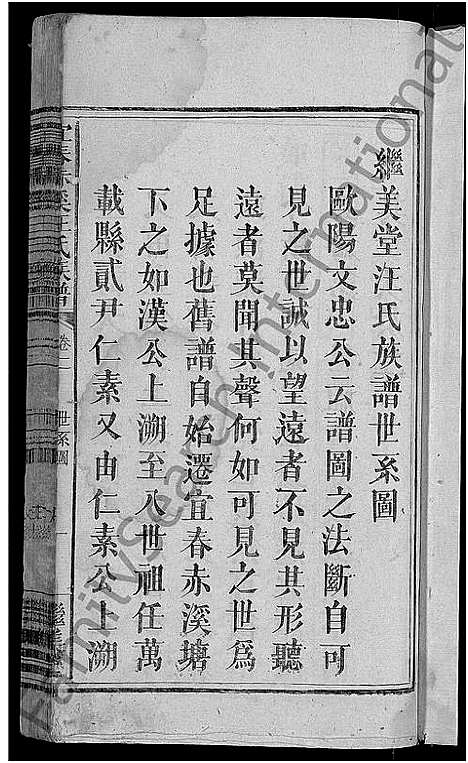 繼美堂汪氏族譜世系圖
歐陽文忠公云譜圖之法斷自可
見之世誠以望遠者不見其形聽
遠者莫聞其聲何如可見之世爲
足據也舊譜自始遷宜春赤溪塘
下之如漢公上溯至八世祖任萬
載縣貳尹仁素又由仁素公上溯
氏族譜
卷二
世系圖
一
FamilySearch International